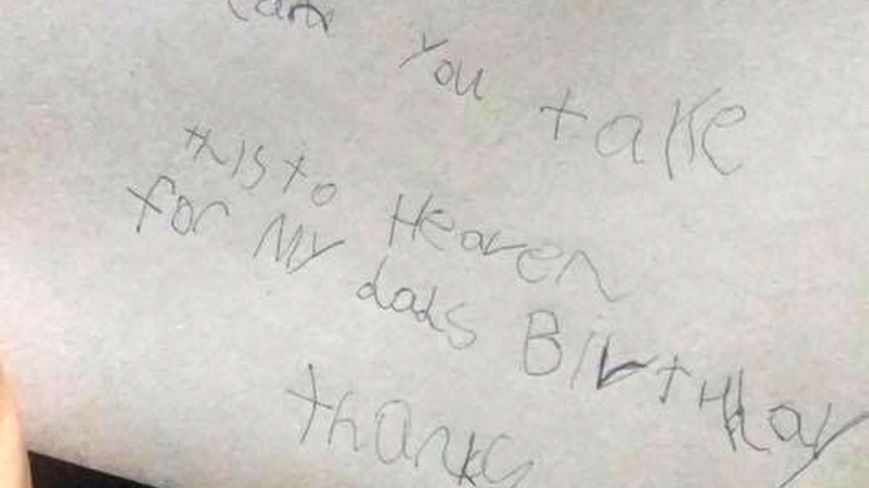 Can you take
this to Heaven
for My dads BirtHday
thanks